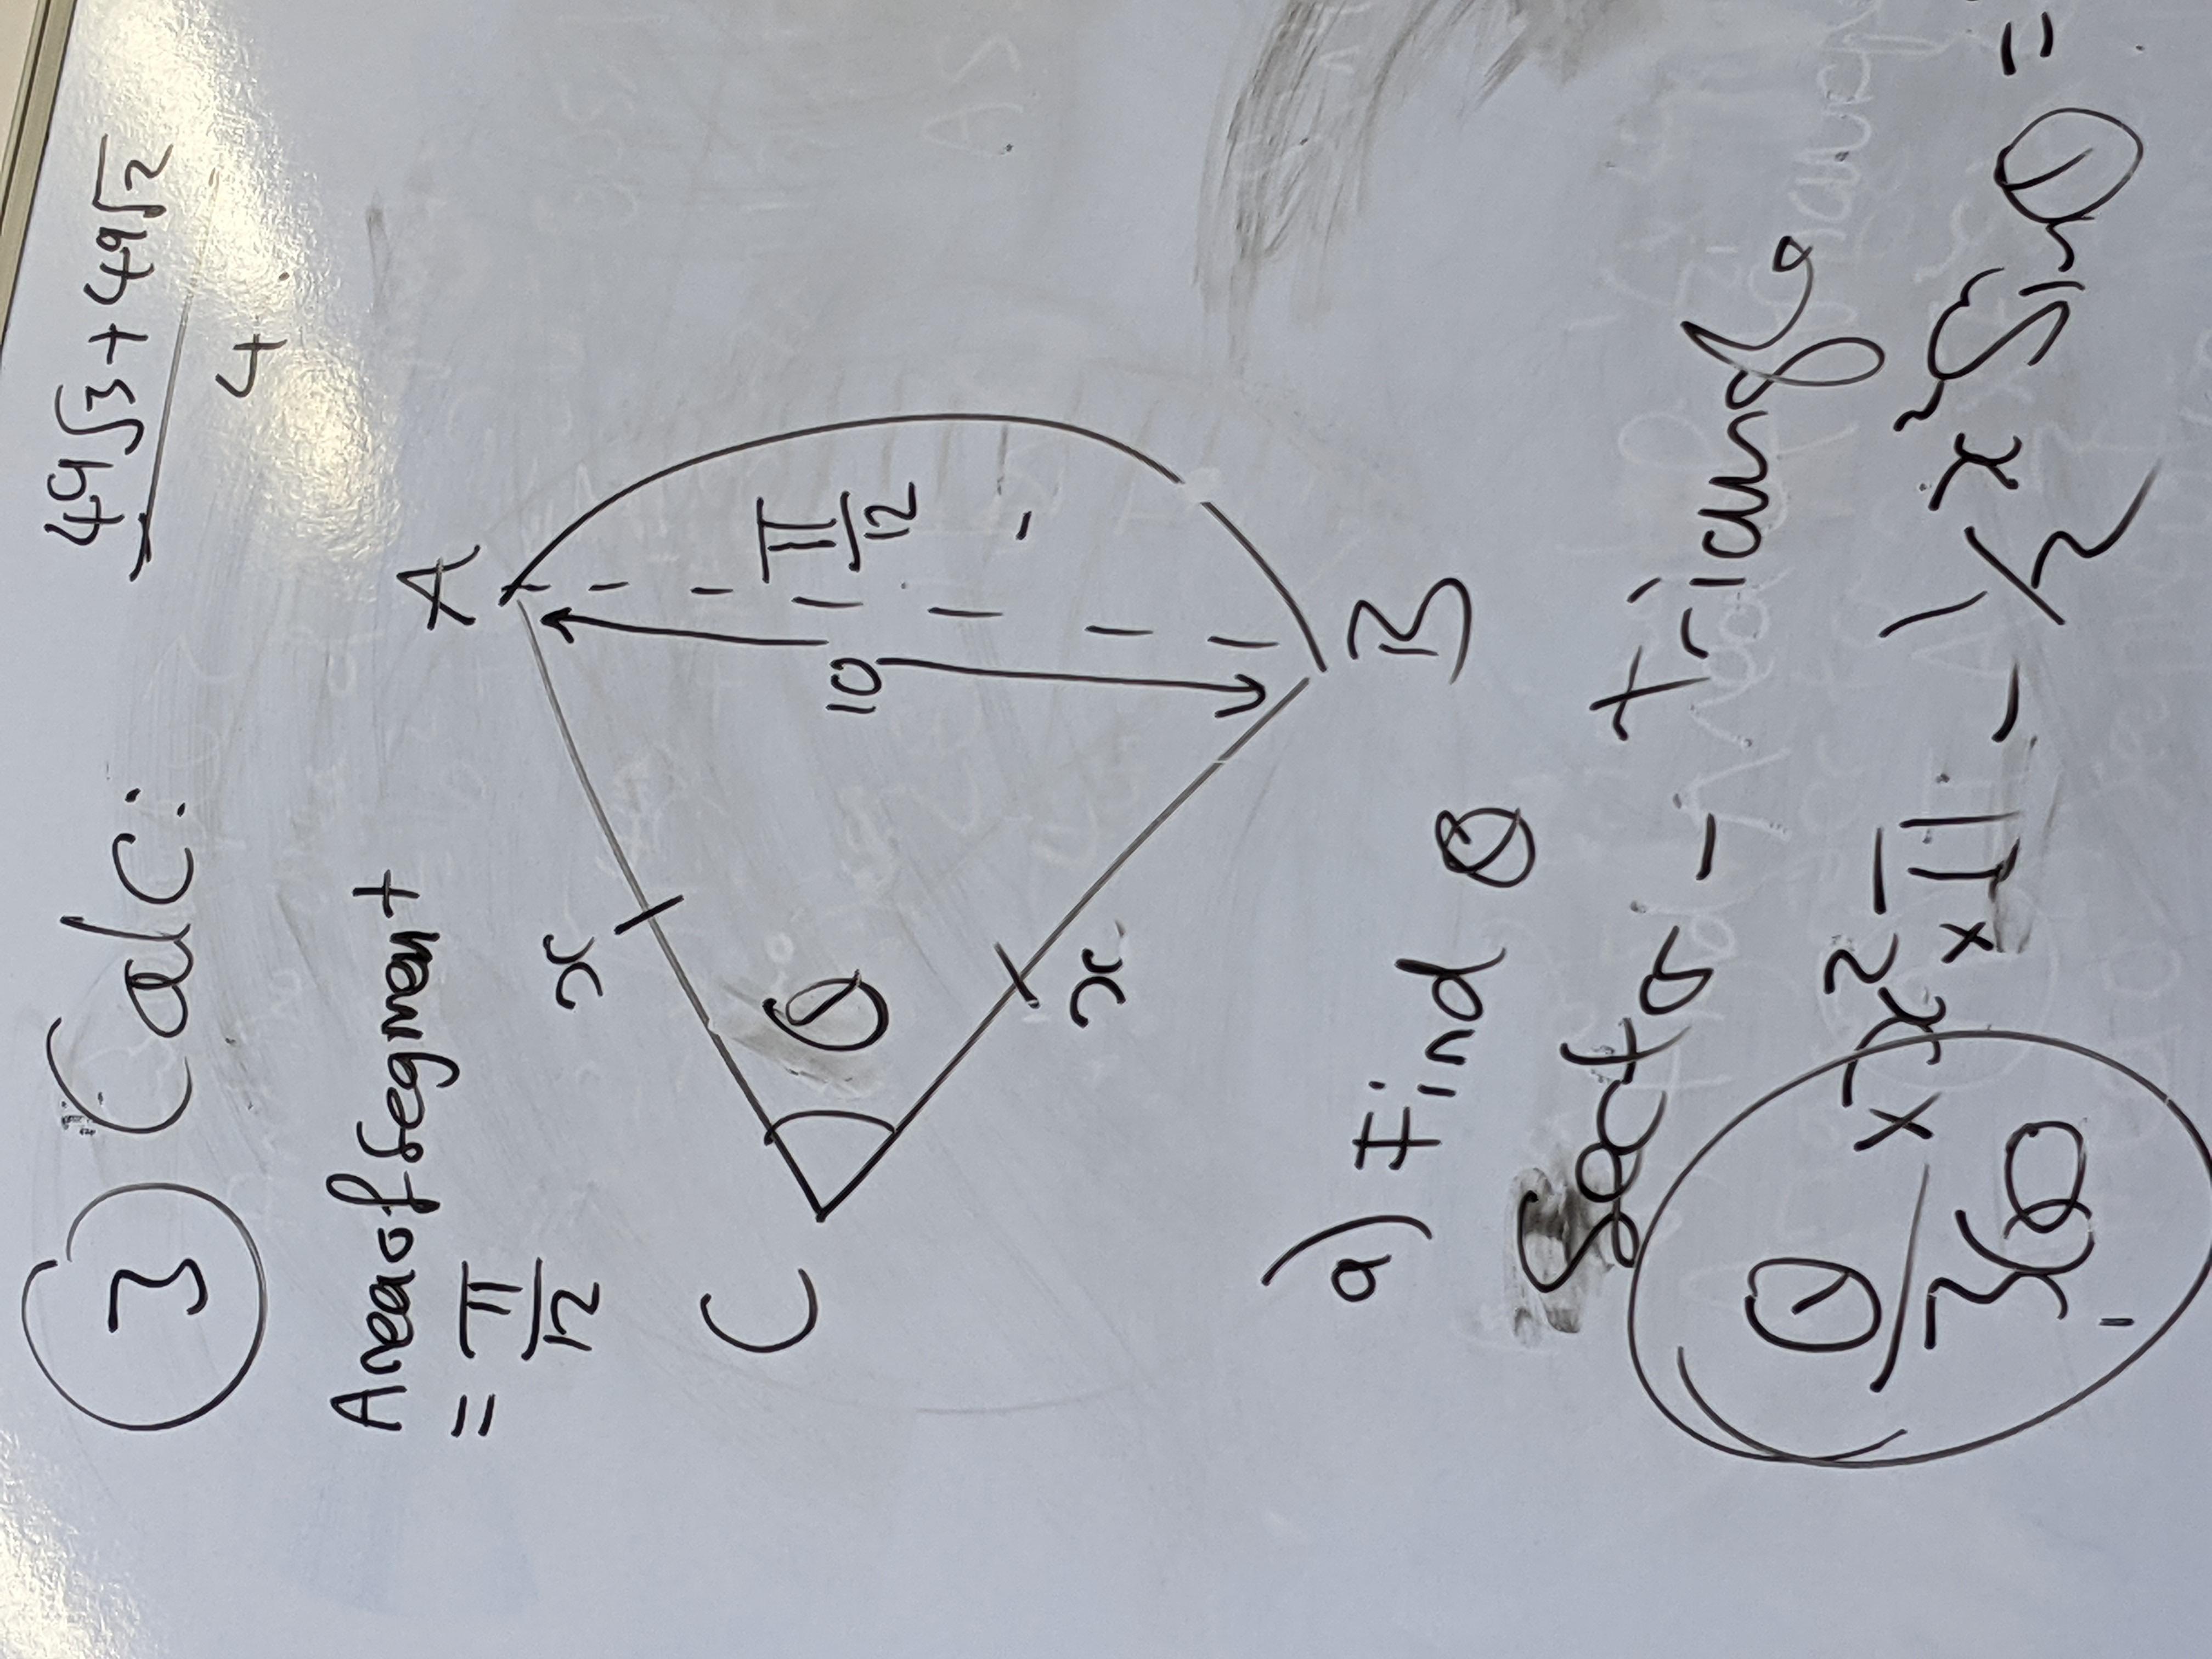 ③ Calc:
49√3 + 49√2
4
Area of Segment
= π/12
A
x
C
θ
10
π/12
x
B
a) Find θ
Sector - triangle
θ/360 × x² × π - 1/2 x² Sin θ =